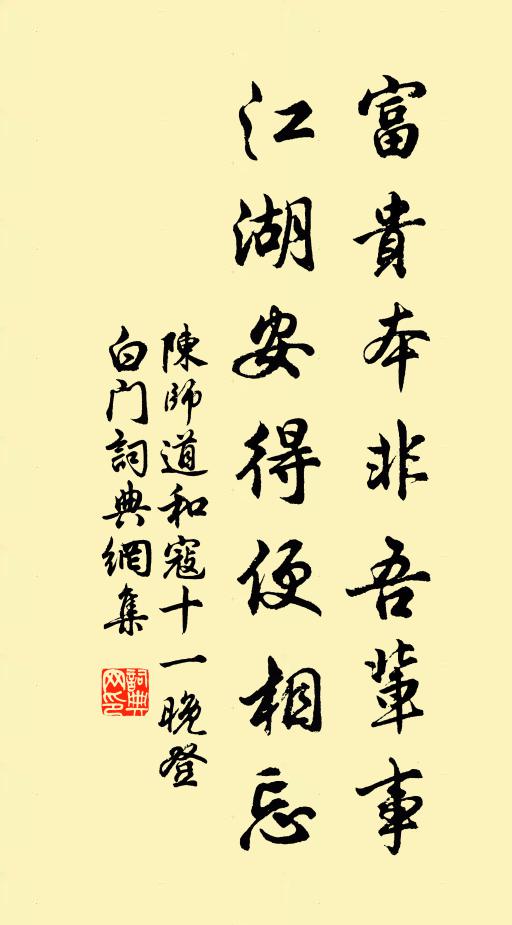 富貴本非吾輩事
江湖安得便相忘
陳師道和寇十一晚登
白门詞典網集
詞典网印